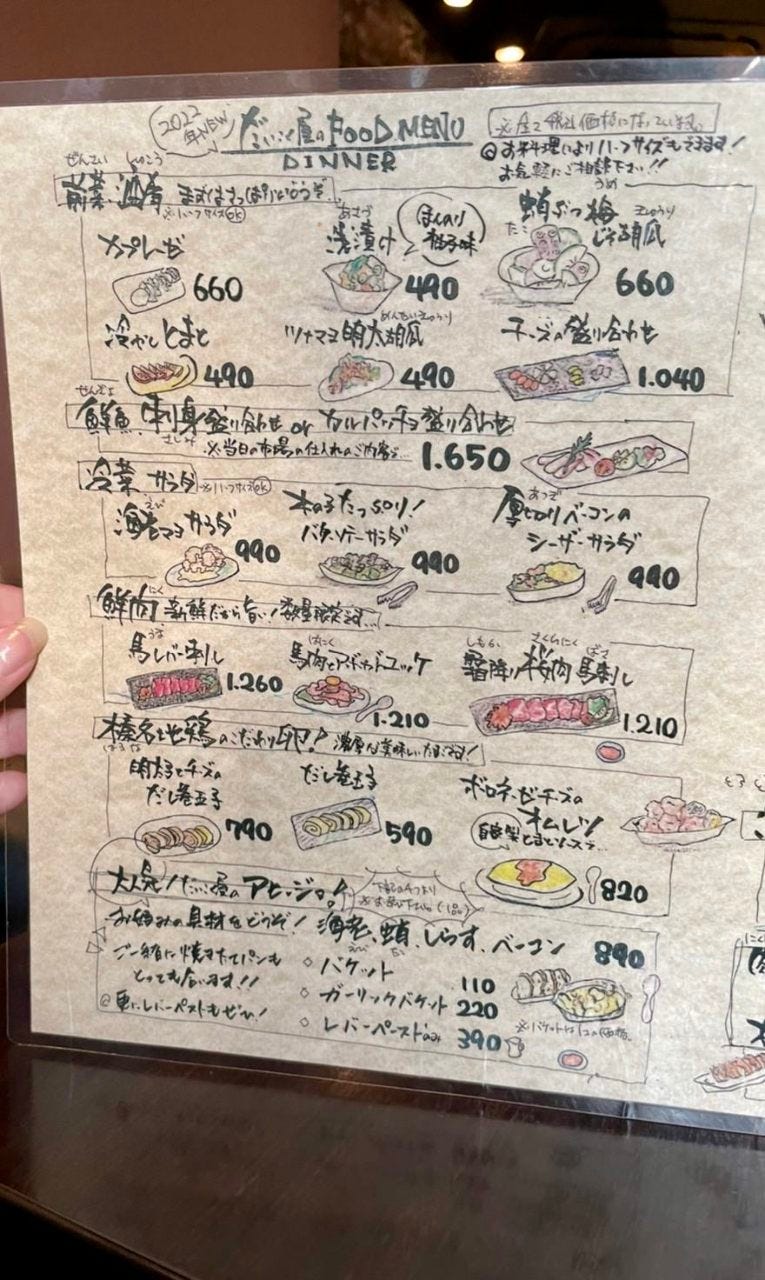 2022年NEW だいこく屋のFOOD MENU
DINNER
※全て税込価格になっています。
◎お料理によりハーフサイズもできます!
お気軽にご相談下さい!!
ぜんさい しゅこう
前菜・酒肴 まずはさっぱりどうぞ…
※ハーフサイズok
カプレーゼ 660
あさづ
浅漬け ほんのり柚子味 490
たこ うめ きゅうり
蛸ぶつ梅じそ胡瓜 660
冷やしとまと 490
めんたいきゅうり
ツナマヨ明太胡瓜 490
チーズの盛り合わせ 1.040
せんぎょ
鮮魚 刺身盛り合わせ or カルパッチョ盛り合わせ
さしみ
※当日の市場の仕入れのご内容で… 1.650
冷菜 サラダ ※ハーフサイズok
えび
海老マヨサラダ 990
木の子たっぷり!
バターソテーサラダ 990
あつぎ
厚切りベーコンの
シーザーサラダ 990
にく
鮮肉 新鮮だから旨い!数量限定です…
うま
馬レバー刺し 1.260
ばにく
馬肉とアボカドユッケ 1.210
しもふり さくらにく ばさ
霜降り桜肉 馬刺し 1.210
榛名地鶏のこだわり卵! 濃厚な美味しいたまごです!
はるな
明太子とチーズの
だし巻玉子 790
だし巻玉子 590
ボロネーゼとチーズの
オムレツ
自家製とまとソースで… 820
大人気!だいこく屋のアヒージョ!
下記の4つより
※お選び下さい。(1品)
お好みの具材をどうぞ! 海老、蛸、しらす、ベーコン 890
えび たこ
ご一緒に焼きたてパンも
とっても合います!!
◎更にレバーペーストもぜひ!
◇バケット 110
◇ガーリックバケット 220
◇レバーペーストのみ 390
※バケットは1コの価格。